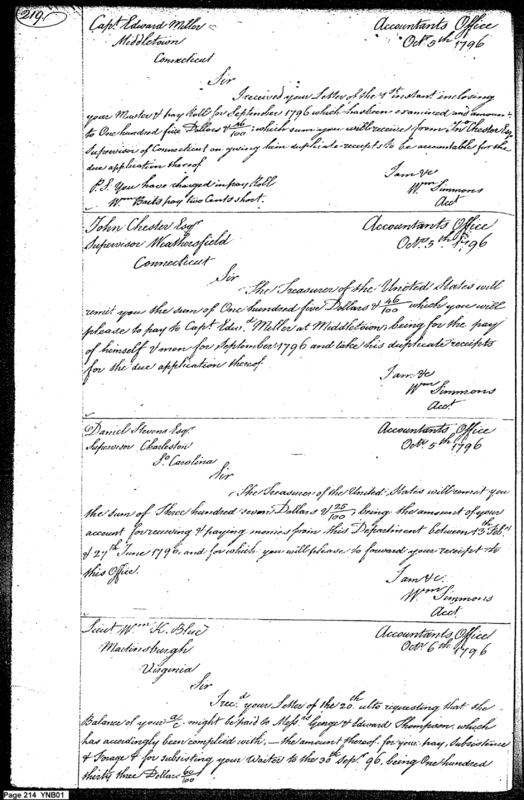 219
Capt. Edward Miller
Middletown
Connecticut
Accountants Office
Octr. 5th 1796
Sir
I received your Letter of the 4th instant inclosing
your Muster & pay Roll for September 1796 which has been examined and amounts
to One hundred five Dollars & 46/100; which sum you will receive from Jno Chester Esq
Supervisor of Connecticut on giving him duplicate receipts to be accountable for the
due application thereof
I am &c
Wm Simmons
Acct.
P.S. You have charged in pay Roll
Wm pay two Cents short.
John Chester Esqr.
Supervisor Weathersfield
Connecticut
Accountants Office
Octr. 5th 1796
Sir
The Treasurer of the United States will
remit you the sum of One hundred five Dollars & 46/100 which you will
please to pay to Capt. Edwd. Miller at Middletown, being for the pay
of himself & men for September 1796 and take his duplicate receipts
for the due application thereof
I am &c
Wm Simmons
Acct.
Daniel Stevens Esqr.
Supervisor Charleston
So. Carolina
Accountants Office
Octr. 5th 1796
Sir
The Treasurer of the United States will remit you
the sum of Three hundred seven Dollars & 25/100 being the amount of your
account for receiving & paying monies from this Department between 13th Feby.
& 27th June 1796, and for which you will please to forward your receipt to
this Office.
I am &c.
Wm Simmons
Acct.
Lieut Wm K. Blue
Martinsburgh
Virginia
Accountants Office
Octr. 6th 1796
Sir
I recd. your Letter of the 20th ulto requesting that the
Balance of your a/c. might be paid to Messrs George & Edward Thompson, which
has accordingly been complied with, — the amount thereof for your pay, Subsistence
& Forage & for subsisting your Waiter to the 30th Sept. 96, being One hundred
thirty three Dollars 60/100
Page 214 YNB01